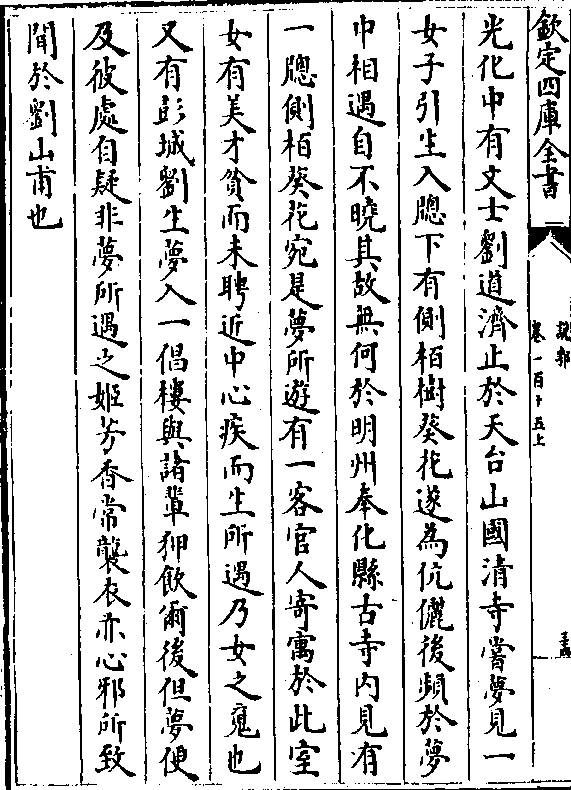 欽定四庫全書
說郛
卷一百十五上
光化中有文士劉道濟止於天台山國清寺嘗夢見一
女子引生入牎下有側栢樹葵花遂為伉儷後頻於夢
中相遇自不曉其故無何於明州奉化縣古寺内見有
一牎側栢葵花宛是夢所遊有一客官人寄寓於此室
女有美才貧而未聘近中心疾而生所遇乃女之䰟也
又有彭城劉生夢入一倡樓與諸輩狎飲爾後但夢便
及彼處自疑非夢所遇之姬芳香常襲衣亦心邪所致
聞於劉山甫也